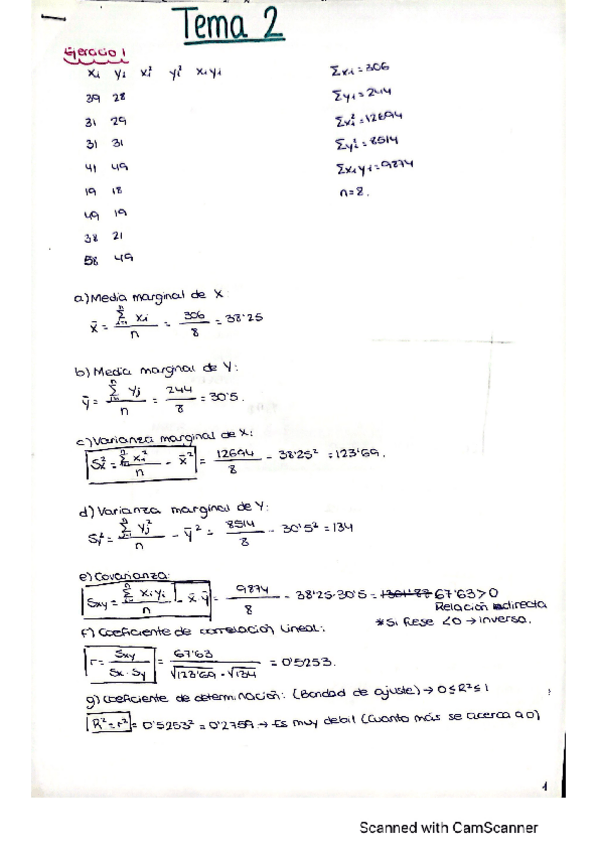 Tema 2
Ejercicio 1
xi yi xi² yi² xiyi
39 28
31 29
31 31
41 49
19 18
49 19
38 21
58 49
Σxi = 306
Σyi = 244
Σxi² = 12694
Σyi² = 8514
Σxiyi = 9874
n = 8.
a) Media marginal de X:
x̄ = Σxi / n = 306 / 8 = 38'25
b) Media marginal de Y:
ȳ = Σyj / n = 244 / 8 = 30'5.
c) Varianza marginal de X:
Sx² = Σxi² / n - x̄² = 12694 / 8 - 38'25² = 123'69.
d) Varianza marginal de Y:
Sy² = Σyj² / n - ȳ² = 8514 / 8 - 30'5² = 134
e) Covarianza:
Sxy = Σxiyi / n - x̄·ȳ = 9874 / 8 - 38'25·30'5 = 67'63 > 0
Relación directa
* Si fuese <0 → inversa.
f) Coeficiente de correlación lineal:
r = Sxy / Sx·Sy = 67'63 / √123'69 · √134 = 0'5253.
g) Coeficiente de determinación: (Bondad de ajuste) → 0 ≤ R² ≤ 1
R² = r² = 0'5253² = 0'2759 → Es muy debil (Cuanto más se acerca a 0)
1
Scanned with CamScanner